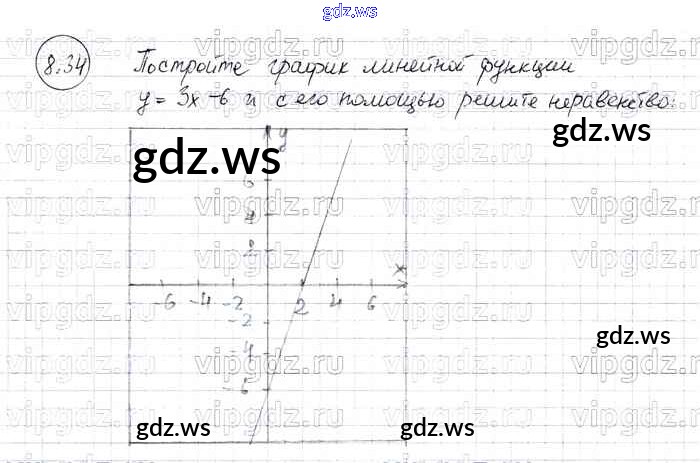 gdz.ws
8.34 Постройте график линейной функции
y = 3x - 6 и с его помощью решите неравенство:
gdz.ws
gdz.ws
y
6
4
2
x
-6 -4 -2 2 4 6
-2
-4
-6
gdz.ws
gdz.ws gdz.ws
vipgdz.ru